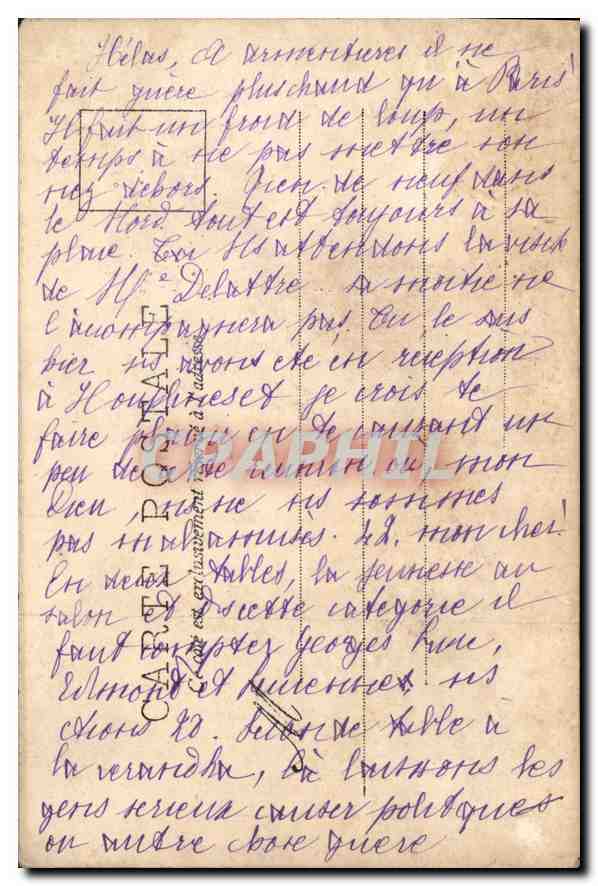 Hélas, A armentieres il ne
fait guère plus chaud qu'à Paris!
Il fait un froid de loup, un
temps à ne pas mettre son
nez dehors. Rien de neuf dans
le Nord tout est toujours à sa
place. ns attendons la visite
de Me Delattre sa moitié ne
l'accompagnera pas. Tu le sais
hier ns avons été en réception
à Houplines et je crois te
faire plaisir en te causant un
peu de cette réunion ou, mon
Dieu, ns ne ns sommes
pas mal amusés. 42. mon cher!
En deux tables, la jeunesse au
salon et ds cette catégorie il
faut compter Georges
Edmond et ns
étions 20. Seconde table à
la verandha, là laissons les
gens sérieux causer politiques
ou autre chose guère
CARTE POSTALE
Ce côté est exclusivement réservé à l'adresse
CPAPHIL.COM